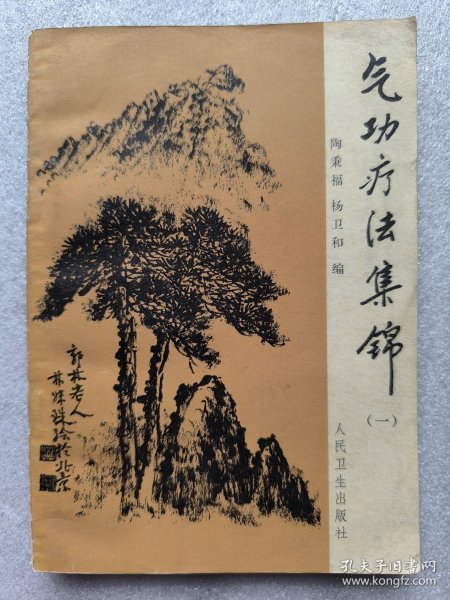 气功疗法集锦
(一)
陶秉福 杨卫和 编
人民卫生出版社
郭林老人
林妹珠绘於北京
孔夫子旧书网
www.kongfz.com